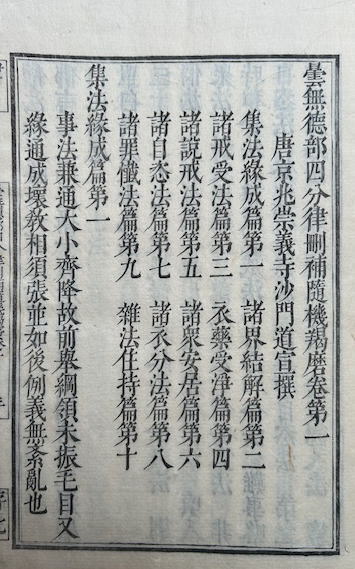 曇無德部四分律刪補隨機羯磨卷第一
唐京兆崇義寺沙門道宣撰
集法緣成篇第一　諸界結解篇第二
諸戒受法篇第三　衣藥受淨篇第四
諸說戒法篇第五　諸眾安居篇第六
諸自恣法篇第七　諸衣分法篇第八
諸罪懺法篇第九　雜法住持篇第十
集法緣成篇第一
事法兼通大小齊降故前舉綱領未振毛目又
緣通成壞教相須張並如後例義無紊亂也